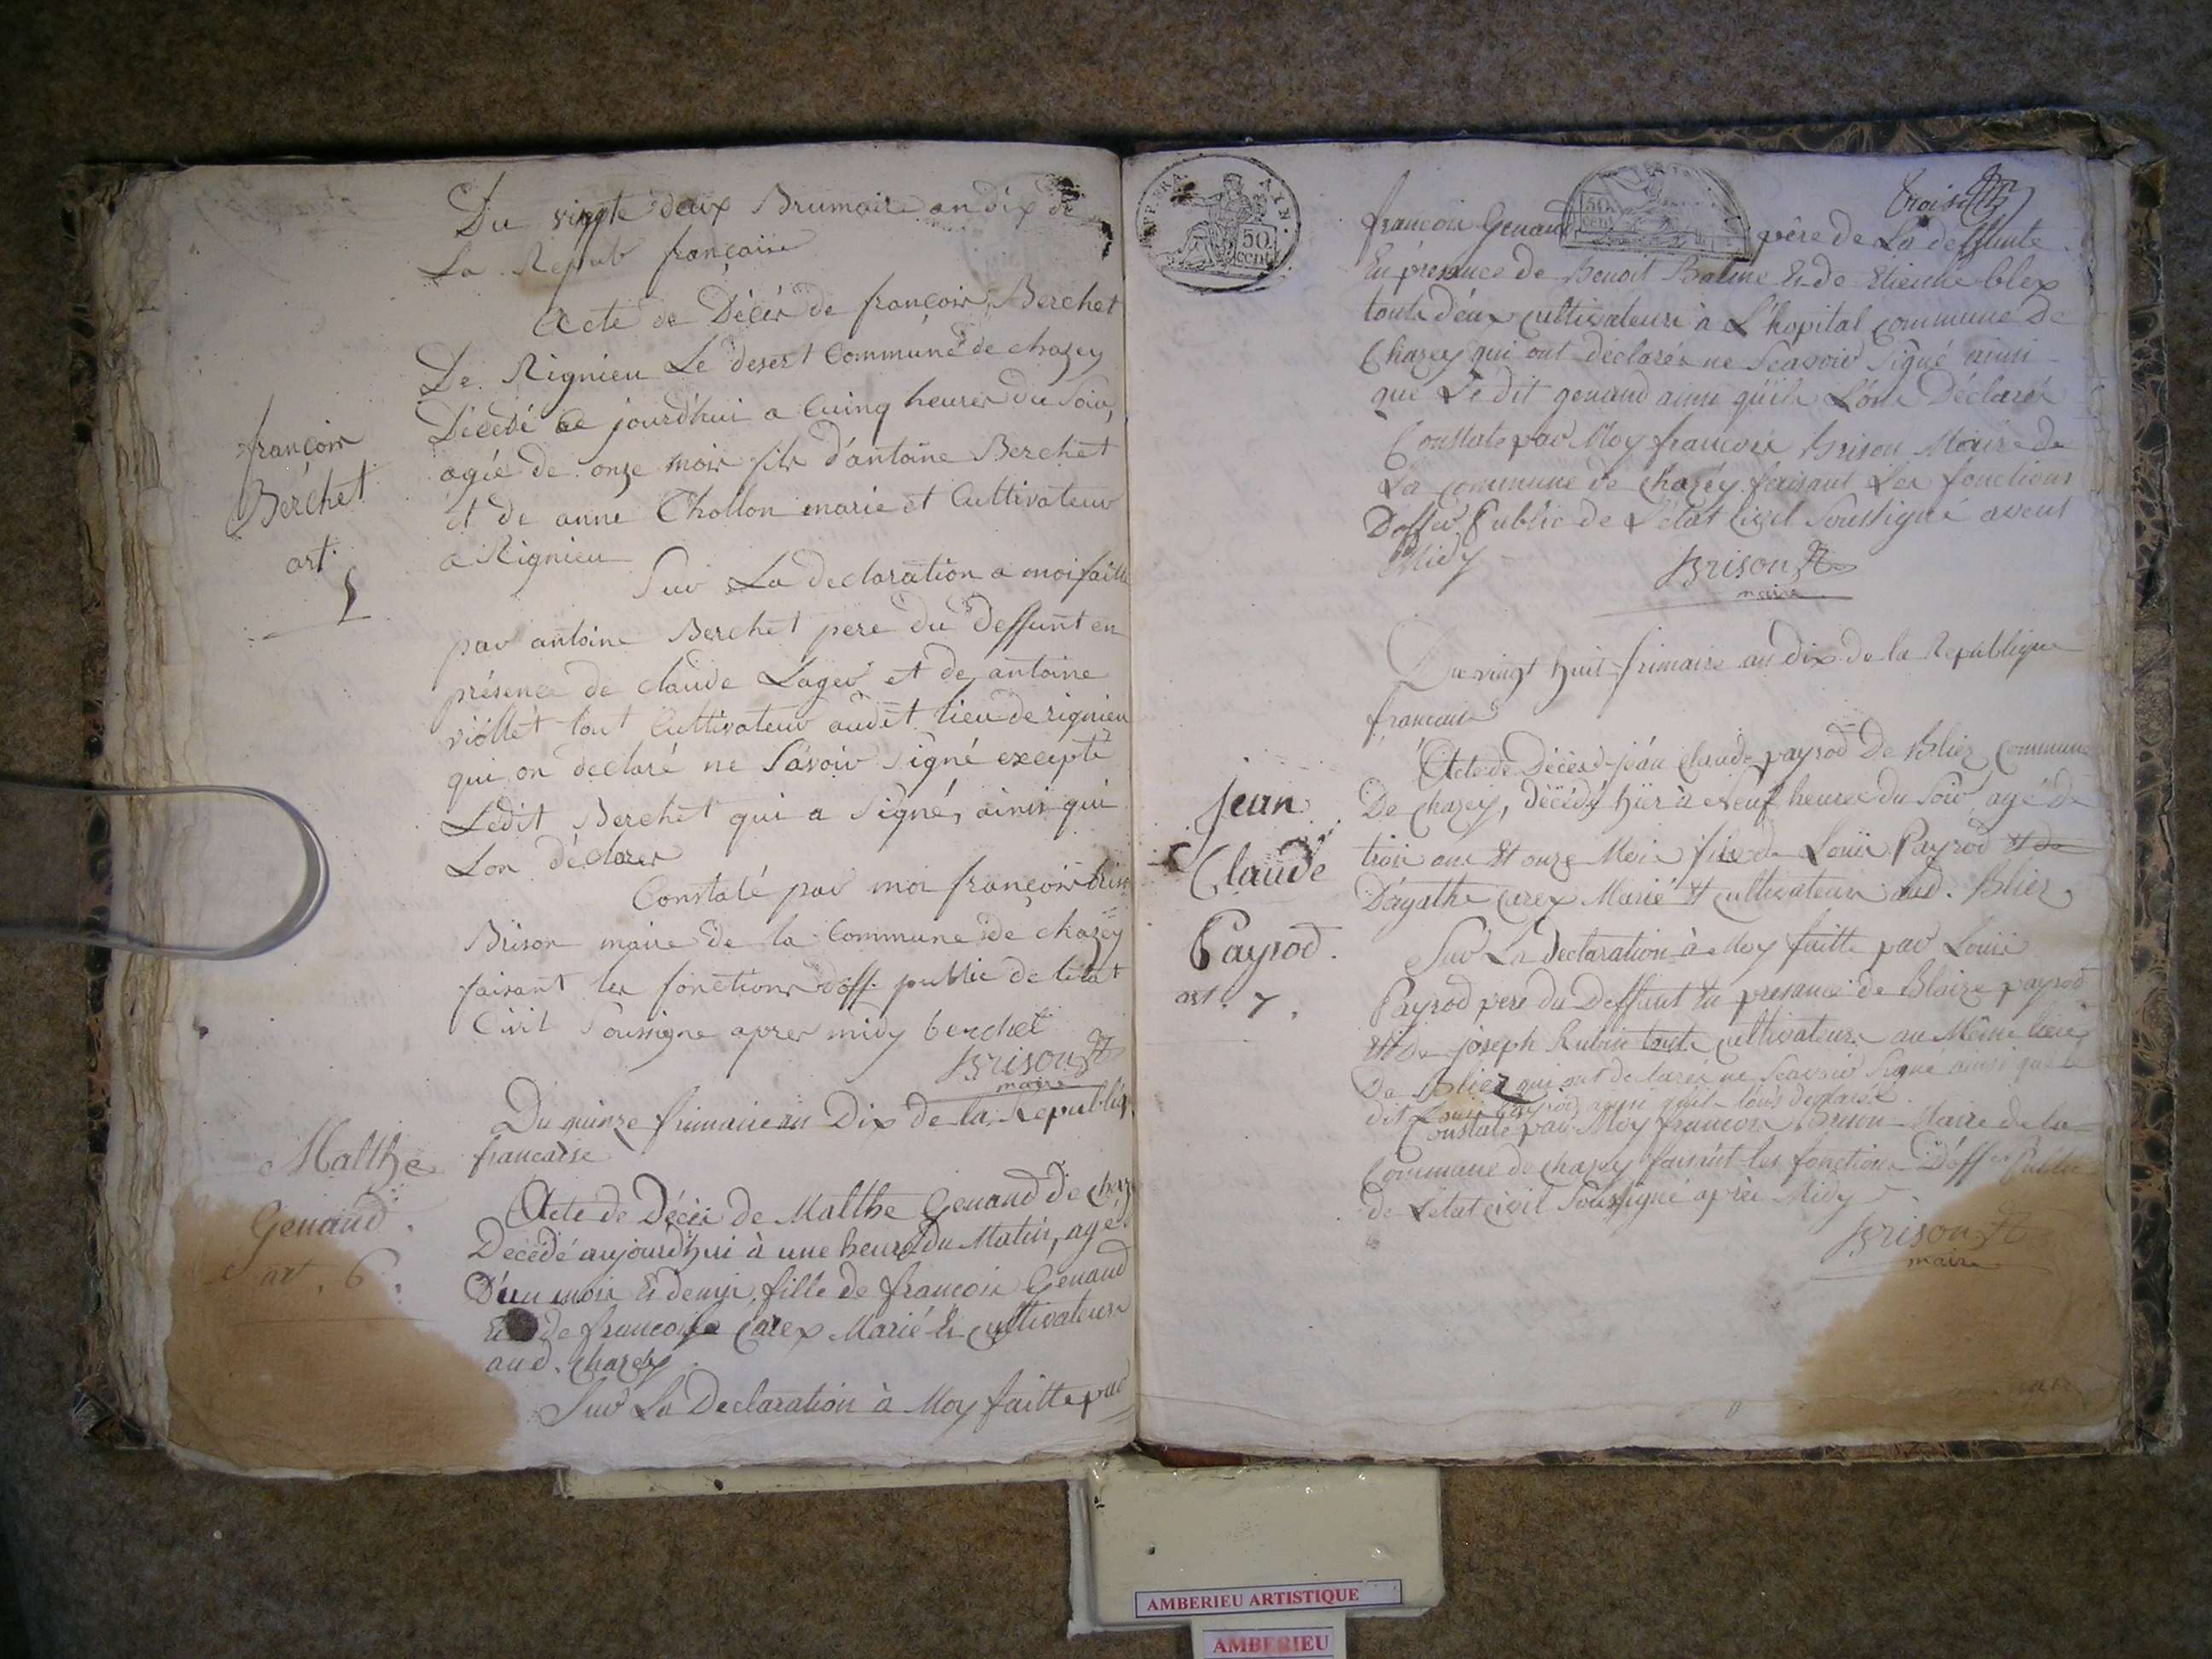 Du vingte deux Brumaire an dix de
La Repub françaiie
Acte de Décès de françois Berchet
De Rignieu Le desert Commune de chazey
Décédé ce jourd'hui a Cuinq heures du Soir,
agée de onze mois fils d'antoine Berchet
et de anne Thollon marie et Cultivateur
a Rignieu
françois
Berchet
art.
Sur La declaration a moi faitte
par antoine Berchet pere du deffunt en
présence de claude Lager et de antoine
viollet tout Cultivateur audit lieu de rignieu
qui on declaré ne Savoir Signé excepté
Ledit Berchet qui a Signé, ainsi qui
Lon déclarer
Constaté par moi françois
Brison maire de la Commune de chazey
faisant les fonctions doff. public de letat
Civil Soussigne apres midy berchet
Brison
maire
Du quinze frimaire an Dix de la Republiq.
francaise
Malthe
Genand.
art. 6.
Acte de Décès de Malthe Genand de chaz
Decédé aujourd'hui à une heure du Matin, agé
D'un mois et demy, fille de francois Genand
Et de francoise Carex Marié et cultivateurs
aud. chazey.
Sur La Declaration à Moy faitte par
IMP. FRA. AYN.
50 cent.
50 cent
francois Genand père de La deffunte
En présence de Benoit Balme et de Etienne blex
touts deux cultivateurs à L'hopital commune de
Chazey qui ont déclarés ne Scavoir Signé ainsi
que Le dit genand ainsi qu'ils L'ont Déclaré
Constate par Moy francois Brison Maire de
La commune de chazey faisant Les fonctions
D'offer Public de L'état civil Soussigné avent
Midy
Brison
maire
Du vingt huit frimaire an dix de la Republique
francaise
Jean
Claude
Payrod.
art. 7.
Acte de Décès de jean Claude payrod De Blier commune
De chazey, décédé hier à Neuf heures du Soir agé de
trois ans et onze Mois fils de Louis Payrod et de
D'agathe Carex Marié et cultivateurs aud. Blier
Sur La Declaration à Moy faitte par Louis
Payrod pere du Deffunt En presance de Blaize payrod
et de joseph Rubin touts cultivateurs au Même lieu
De Blier qui ont declarer ne Scavoir Signé ainsi que le
dit Louis Payrod ainsi quils
Constaté par Moy francois Brison Maire de la
Commune de chazey faisant les fonctions D'offer Public
de Letat civil Soussigné aprés Midy
Brison
maire
AMBERIEU ARTISTIQUE
AMBERIEU